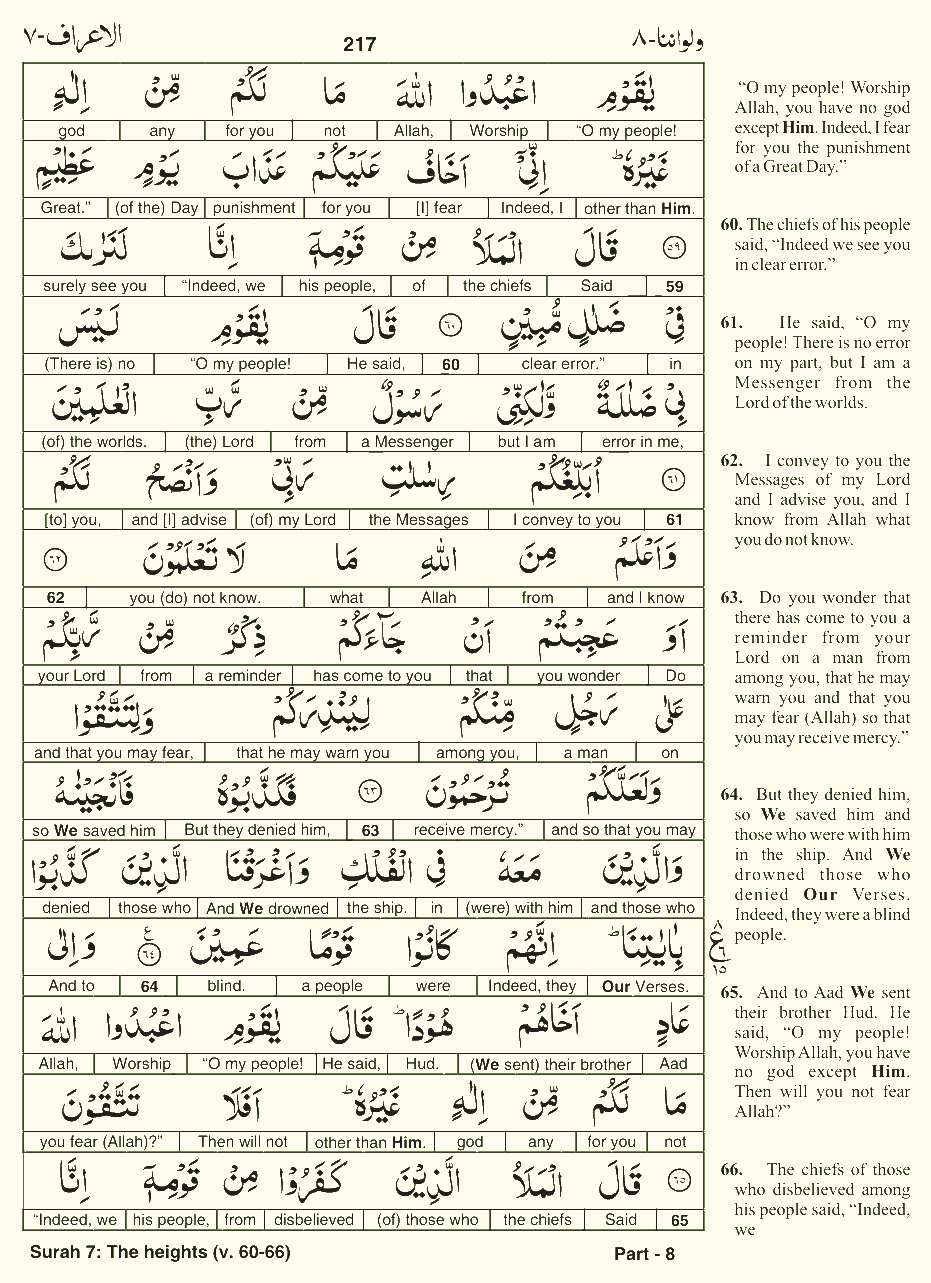 ولواننا-٨
217
الاعراف-٧
يٰقَوْمِ اعْبُدُوا اللّٰهَ مَا لَكُمْ مِّنْ اِلٰهٍ
“O my people! Worship Allah, not for you any god
غَيْرُهٗ ؕ اِنِّىْۤ اَخَافُ عَلَيْكُمْ عَذَابَ يَوْمٍ عَظِيْمٍ
other than Him. Indeed, I [I] fear for you punishment (of the) Day Great.”
٥٩ قَالَ الْمَلَاُ مِنْ قَوْمِهٖۤ اِنَّا لَنَرٰىكَ
59 Said the chiefs of his people, “Indeed, we surely see you
فِىْ ضَلٰلٍ مُّبِيْنٍ ٦٠ قَالَ يٰقَوْمِ لَيْسَ
in clear error.” 60 He said, “O my people! (There is) no
بِىْ ضَلٰلَةٌ وَّلٰكِنِّىْ رَسُوْلٌ مِّنْ رَّبِّ الْعٰلَمِيْنَ
error in me, but I am a Messenger from (the) Lord (of) the worlds.
٦١ اُبَلِّغُكُمْ رِسٰلٰتِ رَبِّىْ وَاَنْصَحُ لَكُمْ
61 I convey to you the Messages (of) my Lord and [I] advise [to] you,
وَاَعْلَمُ مِنَ اللّٰهِ مَا لَا تَعْلَمُوْنَ ٦٢
and I know from Allah what you (do) not know. 62
اَوَ عَجِبْتُمْ اَنْ جَآءَكُمْ ذِكْرٌ مِّنْ رَّبِّكُمْ
Do you wonder that has come to you a reminder from your Lord
عَلٰى رَجُلٍ مِّنْكُمْ لِيُنْذِرَكُمْ وَلِتَتَّقُوْا
on a man among you, that he may warn you and that you may fear,
وَلَعَلَّكُمْ تُرْحَمُوْنَ ٦٣ فَكَذَّبُوْهُ فَاَنْجَيْنٰهُ
and so that you may receive mercy.” 63 But they denied him, so We saved him
وَالَّذِيْنَ مَعَهٗ فِى الْفُلْكِ وَاَغْرَقْنَا الَّذِيْنَ كَذَّبُوْا
and those who (were) with him in the ship. And We drowned those who denied
بِاٰيٰتِنَا ؕ اِنَّهُمْ كَانُوْا قَوْمًا عَمِيْنَ ٦٤ ع وَاِلٰى
Our Verses. Indeed, they were a people blind. 64 And to
عَادٍ اَخَاهُمْ هُوْدًا ؕ قَالَ يٰقَوْمِ اعْبُدُوا اللّٰهَ
Aad (We sent) their brother Hud. He said, “O my people! Worship Allah,
مَا لَكُمْ مِّنْ اِلٰهٍ غَيْرُهٗ ؕ اَفَلَا تَتَّقُوْنَ
not for you any god other than Him. Then will not you fear (Allah)?”
٦٥ قَالَ الْمَلَاُ الَّذِيْنَ كَفَرُوْا مِنْ قَوْمِهٖۤ اِنَّا
65 Said the chiefs (of) those who disbelieved from his people, “Indeed, we
“O my people! Worship
Allah, you have no god
except Him. Indeed, I fear
for you the punishment
of a Great Day.”
60. The chiefs of his people
said, “Indeed we see you
in clear error.”
61. He said, “O my
people! There is no error
on my part, but I am a
Messenger from the
Lord of the worlds.
62. I convey to you the
Messages of my Lord
and I advise you, and I
know from Allah what
you do not know.
63. Do you wonder that
there has come to you a
reminder from your
Lord on a man from
among you, that he may
warn you and that you
may fear (Allah) so that
you may receive mercy.”
64. But they denied him,
so We saved him and
those who were with him
in the ship. And We
drowned those who
denied Our Verses.
Indeed, they were a blind
people.
٨
ع
٦
١٥
65. And to Aad We sent
their brother Hud. He
said, “O my people!
Worship Allah, you have
no god except Him.
Then will you not fear
Allah?”
66. The chiefs of those
who disbelieved among
his people said, “Indeed,
we
Surah 7: The heights (v. 60-66)
Part - 8